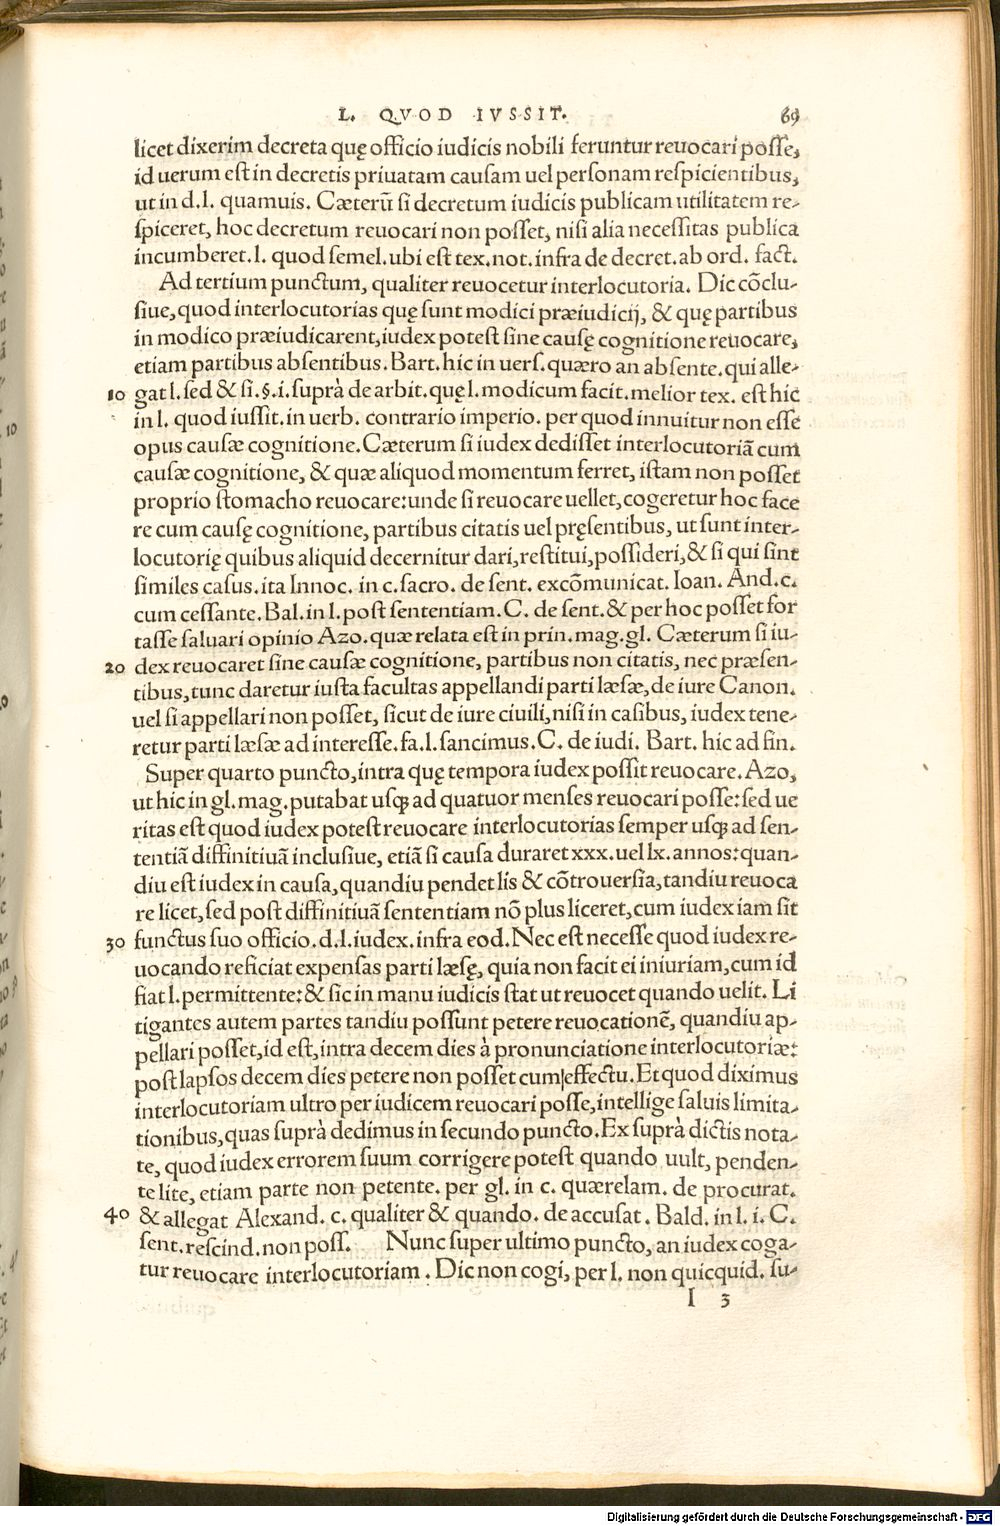 L. QVOD IVSSIT. 69
licet dixerim decreta quę officio iudicis nobili feruntur reuocari posse,
id uerum est in decretis priuatam causam uel personam respicientibus,
ut in d.l. quamuis. Cæterū si decretum iudicis publicam utilitatem re-
spiceret, hoc decretum reuocari non posset, nisi alia necessitas publica
incumberet. l. quod semel. ubi est tex. not. infra de decret. ab ord. fact.
Ad tertium punctum, qualiter reuocetur interlocutoria. Dic cōclu-
siue, quod interlocutorias quę sunt modici præiudicij, & quę partibus
in modico præiudicarent, iudex potest sine causę cognitione reuocare,
etiam partibus absentibus. Bart. hic in uers. quæro an absente. qui alle-
10 gat l. sed & si. §. i. suprà de arbit. quę l. modicum facit. melior tex. est hic
in l. quod iussit. in uerb. contrario imperio. per quod innuitur non esse
opus causæ cognitione. Cæterum si iudex dedisset interlocutoriā cum
causæ cognitione, & quæ aliquod momentum ferret, istam non posset
proprio stomacho reuocare: unde si reuocare uellet, cogeretur hoc face
re cum causę cognitione, partibus citatis uel pręsentibus, ut sunt inter-
locutorię quibus aliquid decernitur dari, restitui, possideri, & si qui sint
similes casus. ita Innoc. in c. sacro. de sent. excōmunicat. Ioan. And. c.
cum cessante. Bal. in l. post sententiam. C. de sent. & per hoc posset for
tasse saluari opinio Azo. quæ relata est in prin. mag. gl. Cæterum si iu-
20 dex reuocaret sine causæ cognitione, partibus non citatis, nec præsen-
tibus, tunc daretur iusta facultas appellandi parti læsæ, de iure Canon.
uel si appellari non posset, sicut de iure ciuili, nisi in casibus, iudex tene-
retur parti læsæ ad interesse. fa. l. sancimus. C. de iudi. Bart. hic ad fin.
Super quarto puncto, intra quę tempora iudex possit reuocare. Azo,
ut hic in gl. mag. putabat usq; ad quatuor menses reuocari posse: sed ue
ritas est quod iudex potest reuocare interlocutorias semper usq; ad sen-
tentiā diffinitiuā inclusiue, etiā si causa duraret xxx. uel lx. annos: quan-
diu est iudex in causa, quandiu pendet lis & cōtrouersia, tandiu reuoca
re licet, sed post diffinitiuā sententiam nō plus liceret, cum iudex iam sit
30 functus suo officio. d. l. iudex. infra eod. Nec est necesse quod iudex re-
uocando reficiat expensas parti læsę, quia non facit ei iniuriam, cum id
fiat l. permittente: & sic in manu iudicis stat ut reuocet quando uelit. Li
tigantes autem partes tandiu possunt petere reuocationē, quandiu ap-
pellari posset, id est, intra decem dies à pronunciatione interlocutoriæ:
post lapsos decem dies petere non posset cum effectu. Et quod diximus
interlocutoriam ultro per iudicem reuocari posse, intellige saluis limita-
tionibus, quas suprà dedimus in secundo puncto. Ex suprà dictis nota-
te, quod iudex errorem suum corrigere potest quando uult, penden-
te lite, etiam parte non petente. per gl. in c. quærelam. de procurat.
40 & allegat Alexand. c. qualiter & quando. de accusat. Bald. in l. i. C.
sent. rescind. non poss. Nunc super ultimo puncto, an iudex coga-
tur reuocare interlocutoriam. Dic non cogi, per l. non quicquid. su-
I 3
Digitalisierung gefördert durch die Deutsche Forschungsgemeinschaft - DFG